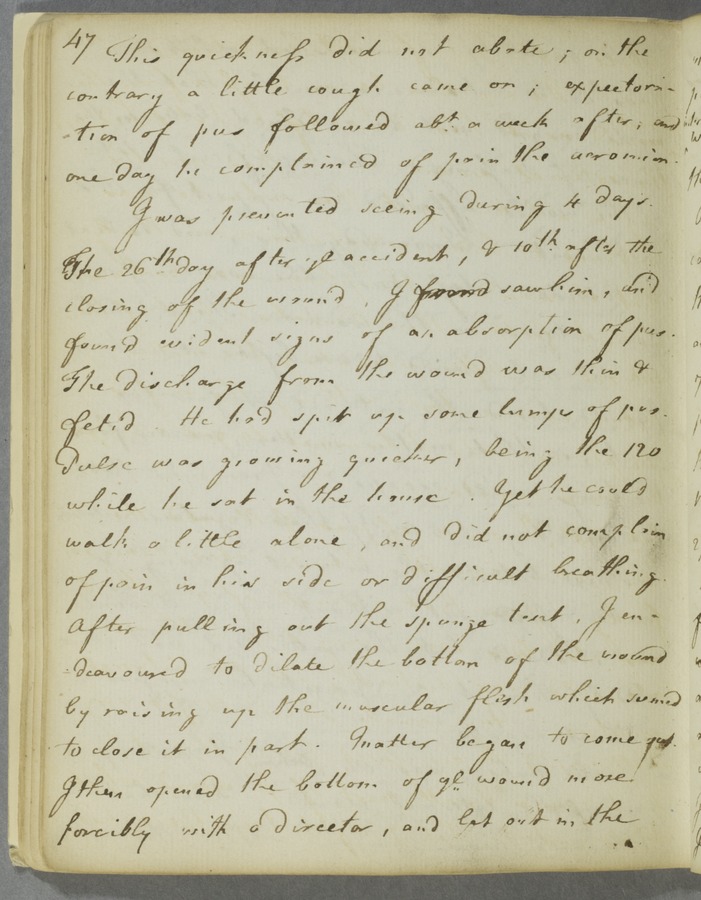 47 This quickness did not abate; on the
contrary a little cough came on; expectora-
-tion of pus followed abt. a week after; and
one day he complained of pain the acromion.
I was prevented seeing during 4 days.
The 26th day after ye accident, & 10th after the
closing of the wound, I found saw him, and
found evident signs of an absorption of pus.
The discharge from the wound was thin &
fetid. He had spit up some lumps of pus.
Pulse was growing quicker, being the 120
while he sat in the house. Yet he could
walk a little alone, and did not complain
of pain in his side or difficult breathing.
After pulling out the sponge tent, I en-
-deavoured to dilate the bottom of the wound
by raising up the muscular flesh which seemed
to close it in part. Matter began to come out.
I then opened the bottom of ye wound more
forcibly with a director, and let out in the